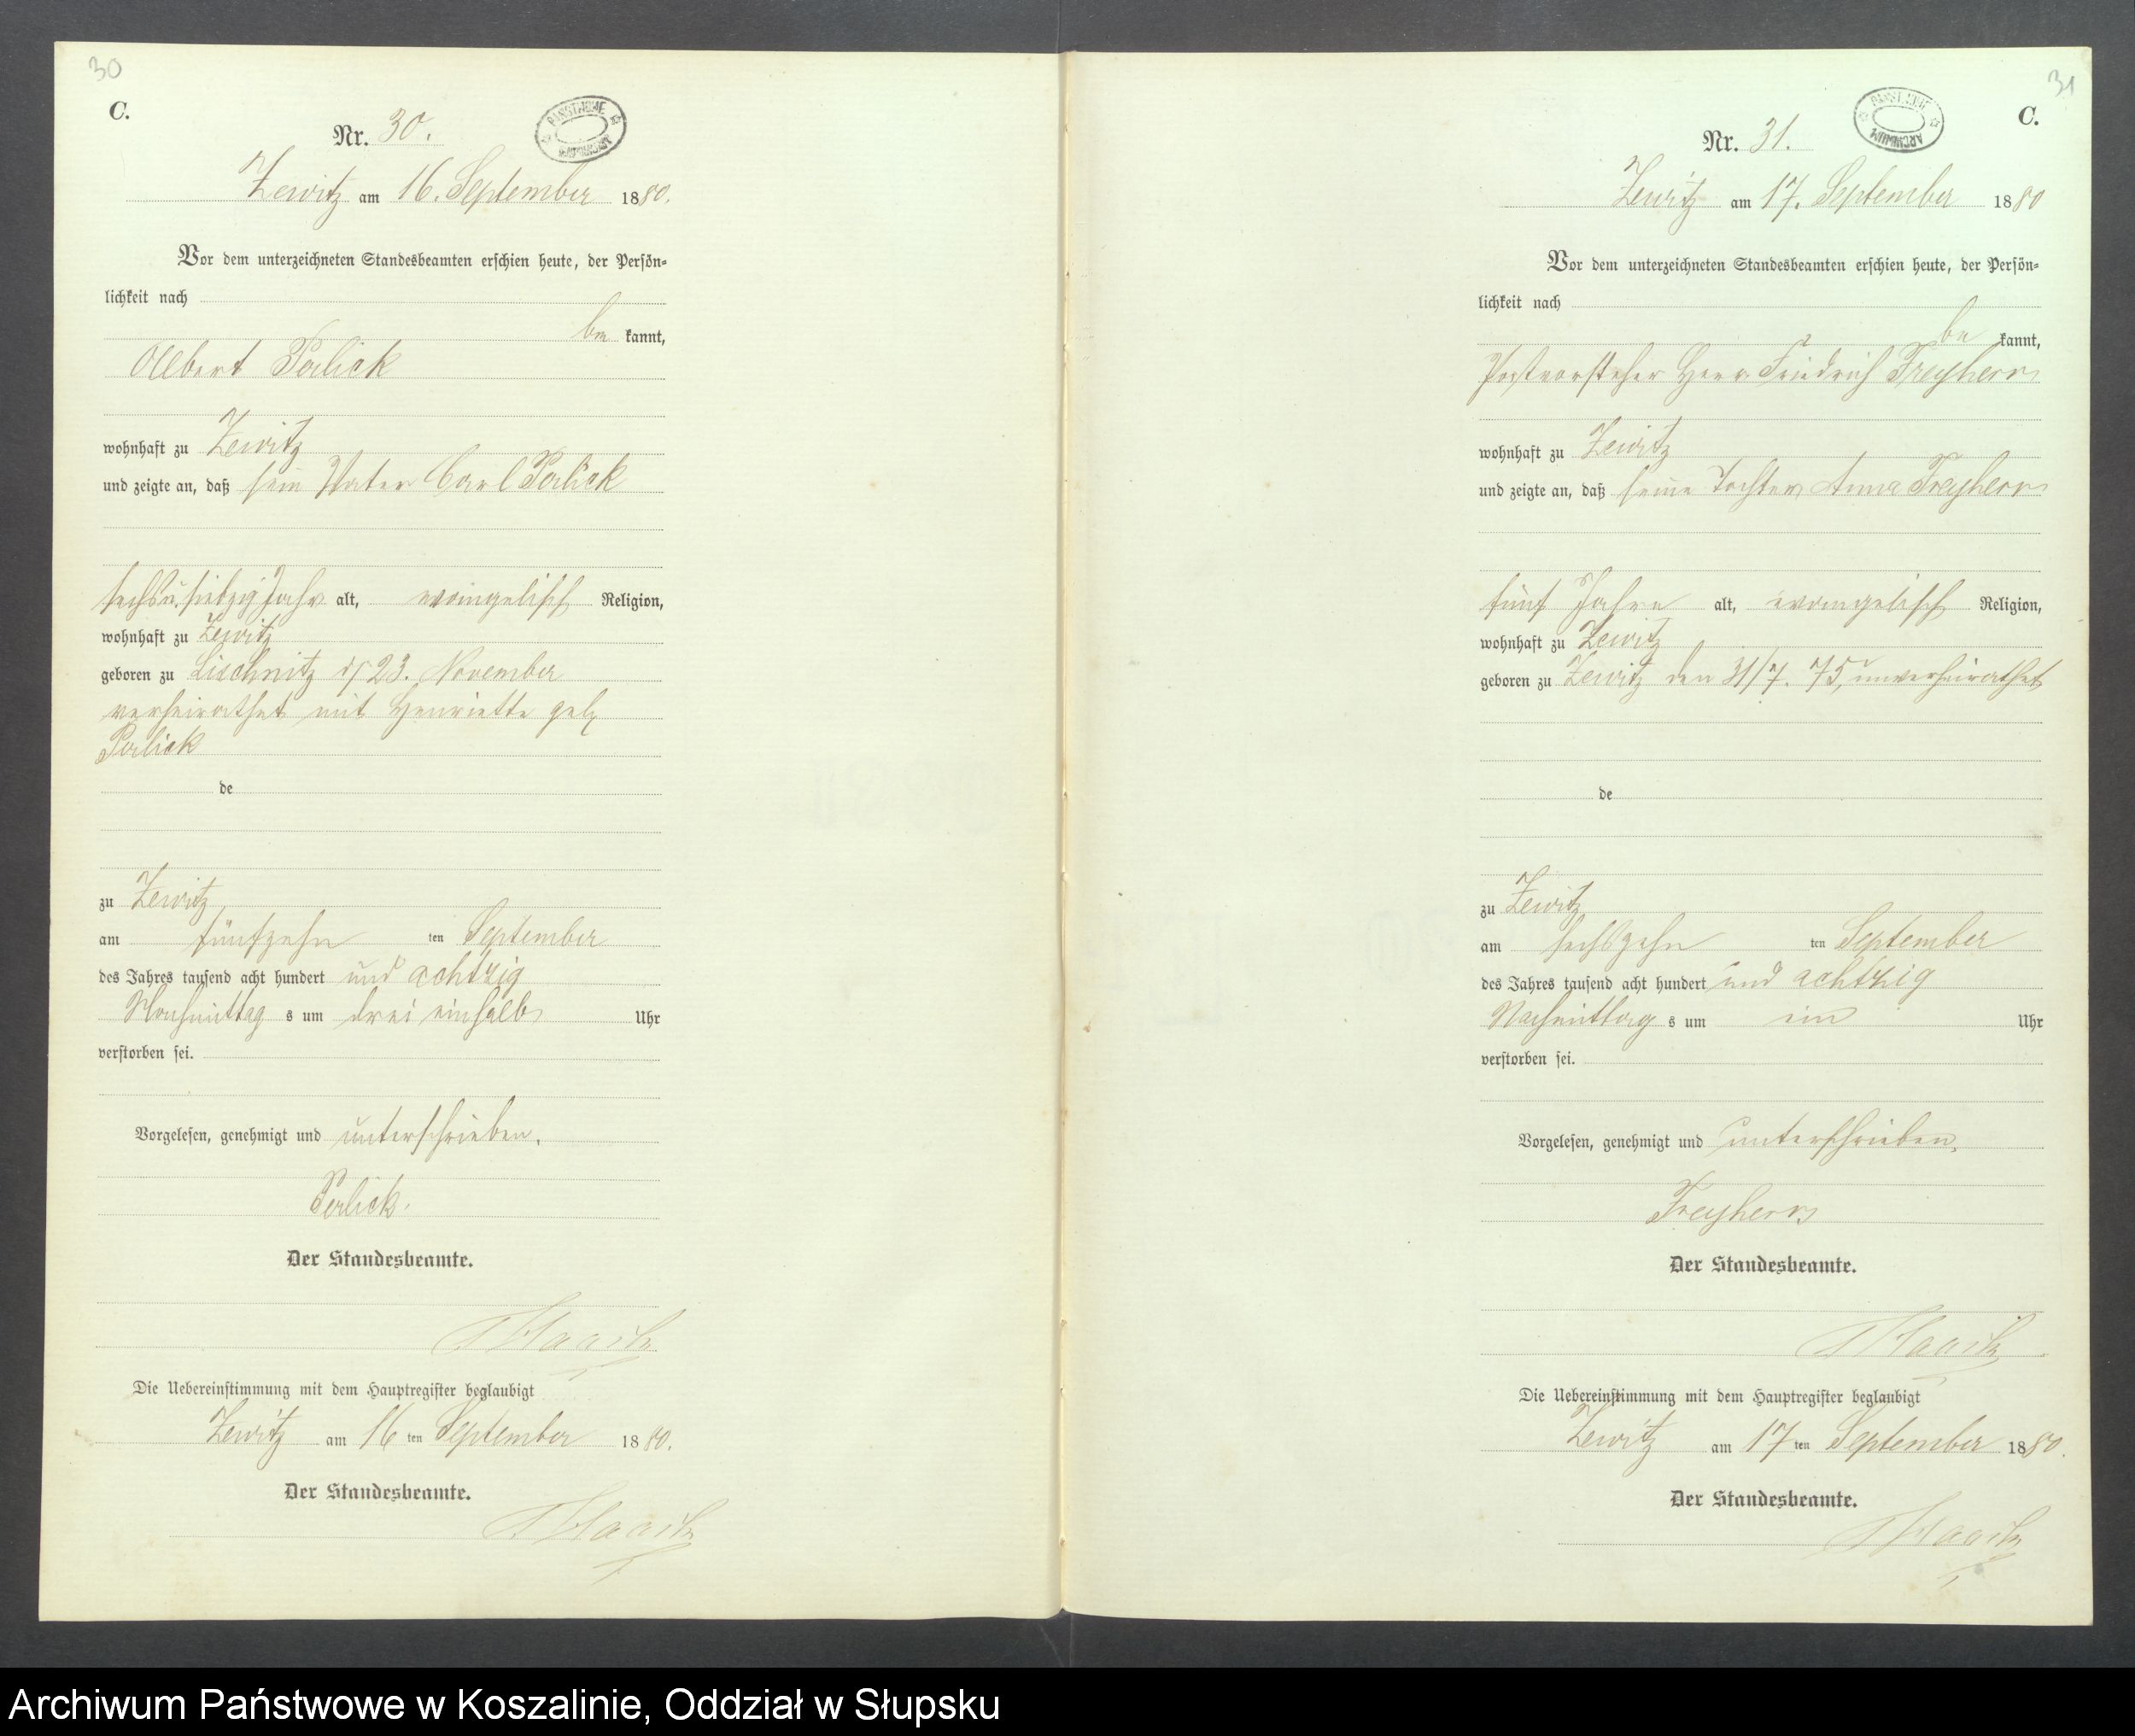 30
C.
Nr. 30.
PAŃSTWOWE ARCHIWUM
Zewitz am 16. September 1880.
Vor dem unterzeichneten Standesbeamten erschien heute, der Persön-
lichkeit nach
be kannt,
Albert Perlick
wohnhaft zu Zewitz
und zeigte an, daß sein Vater Carl Perlick
sechs u. siebzig Jahr alt, evangelisch Religion,
wohnhaft zu Zewitz
geboren zu Lischnitz 23. November
verheirathet mit Henriette geb
Perlick
de
zu Zewitz
am fünfzehn ten September
des Jahres tausend acht hundert und achtzig
Nachmittag s um drei einhalb Uhr
verstorben sei.
Vorgelesen, genehmigt und unterschrieben.
Perlick.
Der Standesbeamte.
Die Uebereinstimmung mit dem Hauptregister beglaubigt
Zewitz am 16 ten September 1880.
Der Standesbeamte.
31
C.
Nr. 31.
PAŃSTWOWE ARCHIWUM
Zewitz am 17. September 1880
Vor dem unterzeichneten Standesbeamten erschien heute, der Persön-
lichkeit nach
be kannt,
Postvorsteher Herr Friedrich Freyherr
wohnhaft zu Zewitz
und zeigte an, daß seine Tochter Anna Freyherr
fünf Jahre alt, evangelisch Religion,
wohnhaft zu Zewitz
geboren zu Zewitz den 31/7. 75, unverheirathet
de
zu Zewitz
am sechszehn ten September
des Jahres tausend acht hundert und achtzig
Nachmittag s um ein Uhr
verstorben sei.
Vorgelesen, genehmigt und unterschrieben.
Freyherr
Der Standesbeamte.
Die Uebereinstimmung mit dem Hauptregister beglaubigt
Zewitz am 17 ten September 1880.
Der Standesbeamte.
Archiwum Państwowe w Koszalinie, Oddział w Słupsku